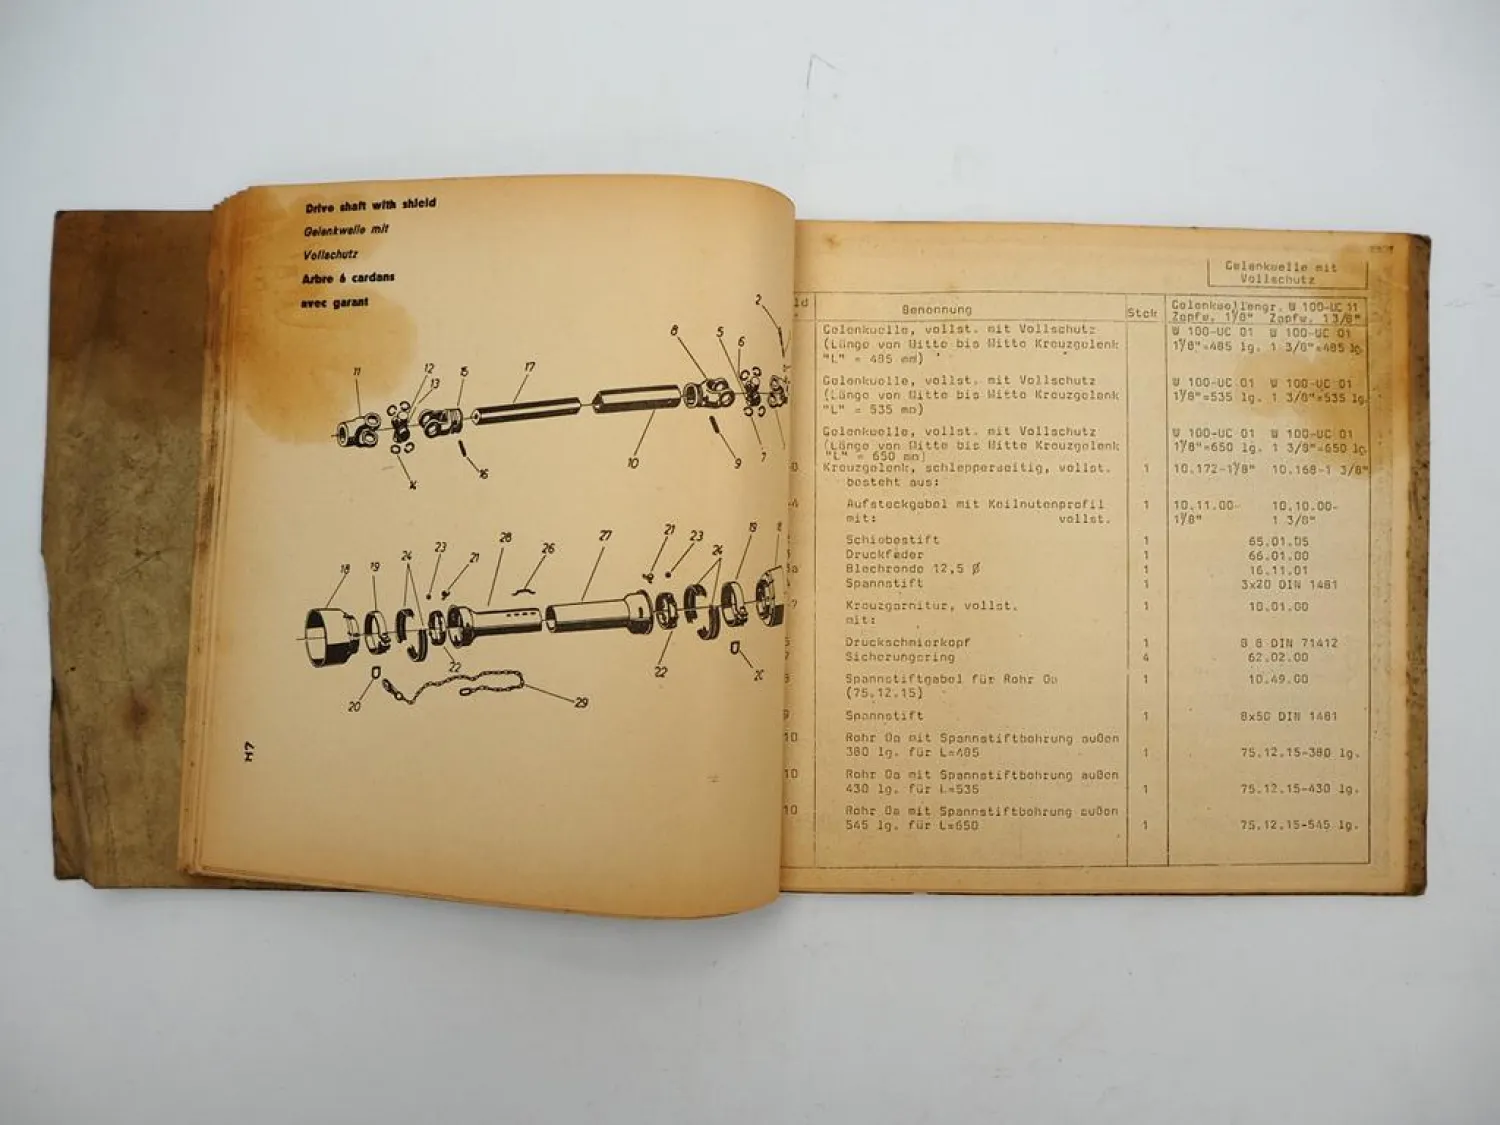 Drive shaft with shield
Gelenkwelle mit
Vollschutz
Arbre á cardans
avec garant
2
8
5
6
11
12
13
15
17
14
16
10
9
7
18
19
24
23
21
28
26
27
21
23
24
19
22
22
20
20
29
H7
Gelenkwelle mit
Vollschutz
Benennung
Stck
Gelenkwellengr. W 100-UC 11
Zapfw. 1⅛" Zapfw. 1 3/8"
Gelenkwelle, vollst. mit Vollschutz W 100-UC 01 W 100-UC 01
(Länge von Mitte bis Mitte Kreuzgelenk 1⅛"=485 lg. 1 3/8"=485 lg.
"L" = 485 mm)
Gelenkwelle, vollst. mit Vollschutz W 100-UC 01 W 100-UC 01
(Länge von Mitte bis Mitte Kreuzgelenk 1⅛"=535 lg. 1 3/8"=535 lg.
"L" = 535 mm)
Gelenkwelle, vollst. mit Vollschutz W 100-UC 01 W 100-UC 01
(Länge von Mitte bis Mitte Kreuzgelenk 1⅛"=650 lg. 1 3/8"=650 lg.
"L" = 650 mm)
Kreuzgelenk, schlepperseitig, vollst. 1 10.172-1⅛" 10.168-1 3/8"
besteht aus:
Aufsteckgabel mit Keilnutenprofil 1 10.11.00- 10.10.00-
mit: vollst. 1⅛" 1 3/8"
Schiebestift 1 65.01.05
Druckfeder 1 66.01.00
Blechronde 12,5 Ø 1 16.11.01
Spannstift 1 3x20 DIN 1481
Kreuzgarnitur, vollst. 1 10.01.00
mit:
Druckschmierkopf 1 B 8 DIN 71412
Sicherungsring 4 62.02.00
Spannstiftgabel für Rohr 0a 1 10.49.00
(75.12.15)
Spannstift 1 8x50 DIN 1481
10 Rohr 0a mit Spannstiftbohrung außen
380 lg. für L=485 1 75.12.15-380 lg.
10 Rohr 0a mit Spannstiftbohrung außen
430 lg. für L=535 1 75.12.15-430 lg.
10 Rohr 0a mit Spannstiftbohrung außen
545 lg. für L=650 1 75.12.15-545 lg.